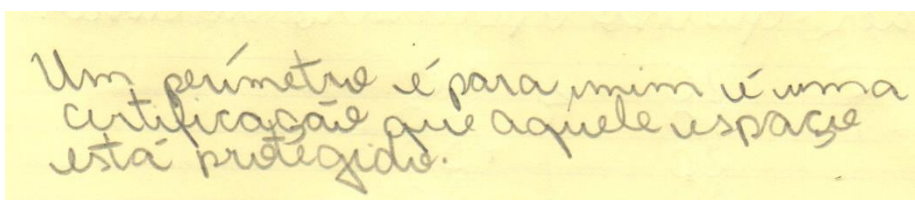 Um perímetro é para mim é uma
certificação que aquele espaço
está protegido.